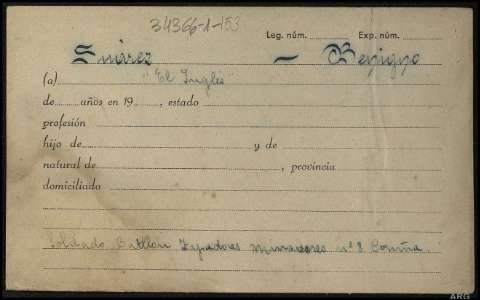 34366-1-153
Leg. núm. Exp. núm.
Suárez - Benigno
(a) "El Inglés"
de años en 19 , estado
profesión
hijo de y de
natural de , provincia
domiciliado
Soldado Batllon Zapadores minadores nº 8 Coruña.
ARG